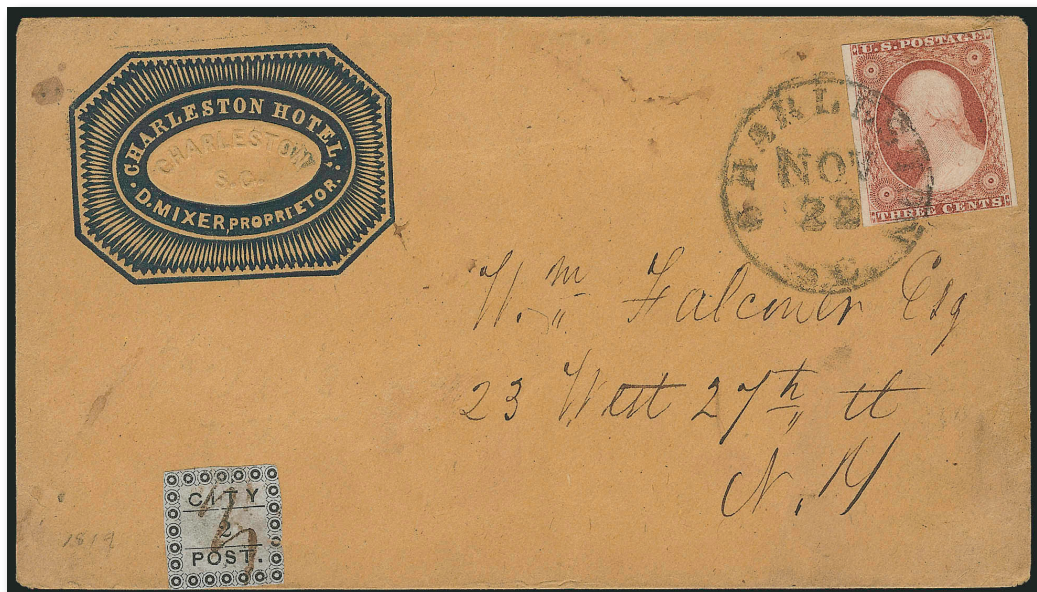 CHARLESTON HOTEL,
CHARLESTON
S.C.
D. MIXER, PROPRIETOR.
U.S. POSTAGE
THREE CENTS
CHARLESTON
NOV
22
S.C.
Wm Falconer Esq
23 West 27th st
N. Y
CITY
2
POST.